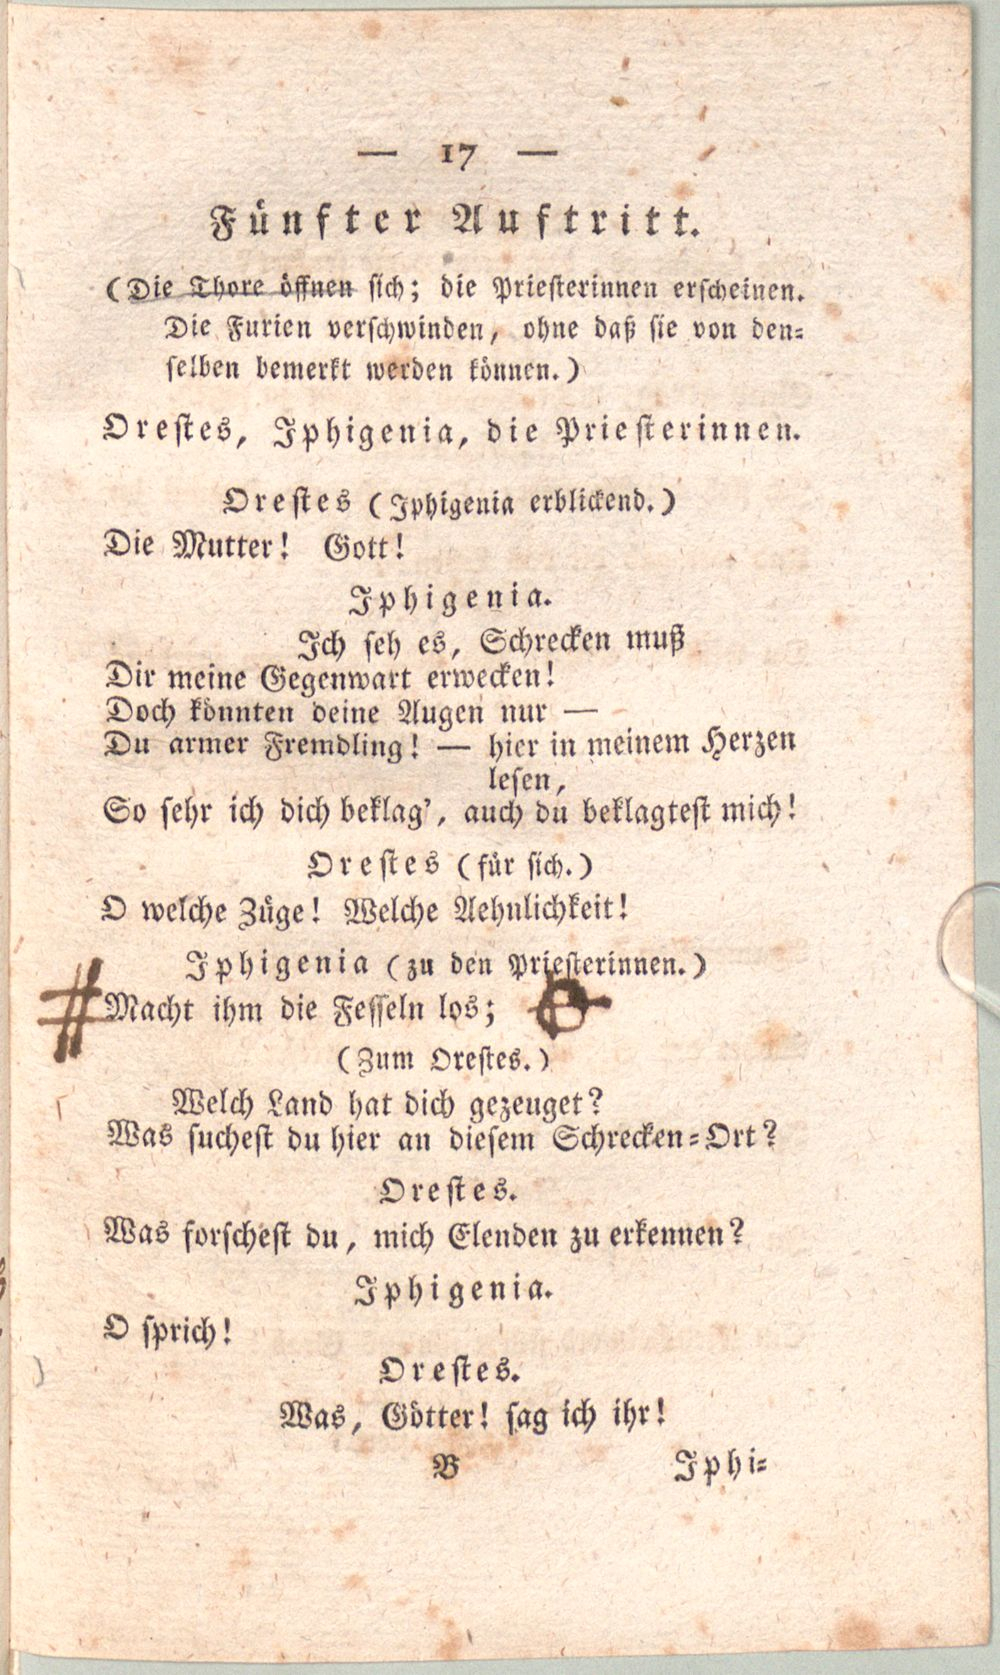 — 17 —
Fünfter Auftritt.
(Die Thore öffnen sich; die Priesterinnen erscheinen.
Die Furien verschwinden, ohne daß sie von den-
selben bemerkt werden können.)
Orestes, Iphigenia, die Priesterinnen.
Orestes (Iphigenia erblickend.)
Die Mutter! Gott!
Iphigenia.
Ich seh es, Schrecken muß
Dir meine Gegenwart erwecken!
Doch könnten deine Augen nur —
Du armer Fremdling! — hier in meinem Herzen
lesen,
So sehr ich dich beklag', auch du beklagtest mich!
Orestes (für sich.)
O welche Züge! Welche Aehnlichkeit!
Iphigenia (zu den Priesterinnen.)
Macht ihm die Fesseln los;
(Zum Orestes.)
Welch Land hat dich gezeuget?
Was suchest du hier an diesem Schrecken-Ort?
Orestes.
Was forschest du, mich Elenden zu erkennen?
Iphigenia.
O sprich!
Orestes.
Was, Götter! sag ich ihr!
B Iphi-